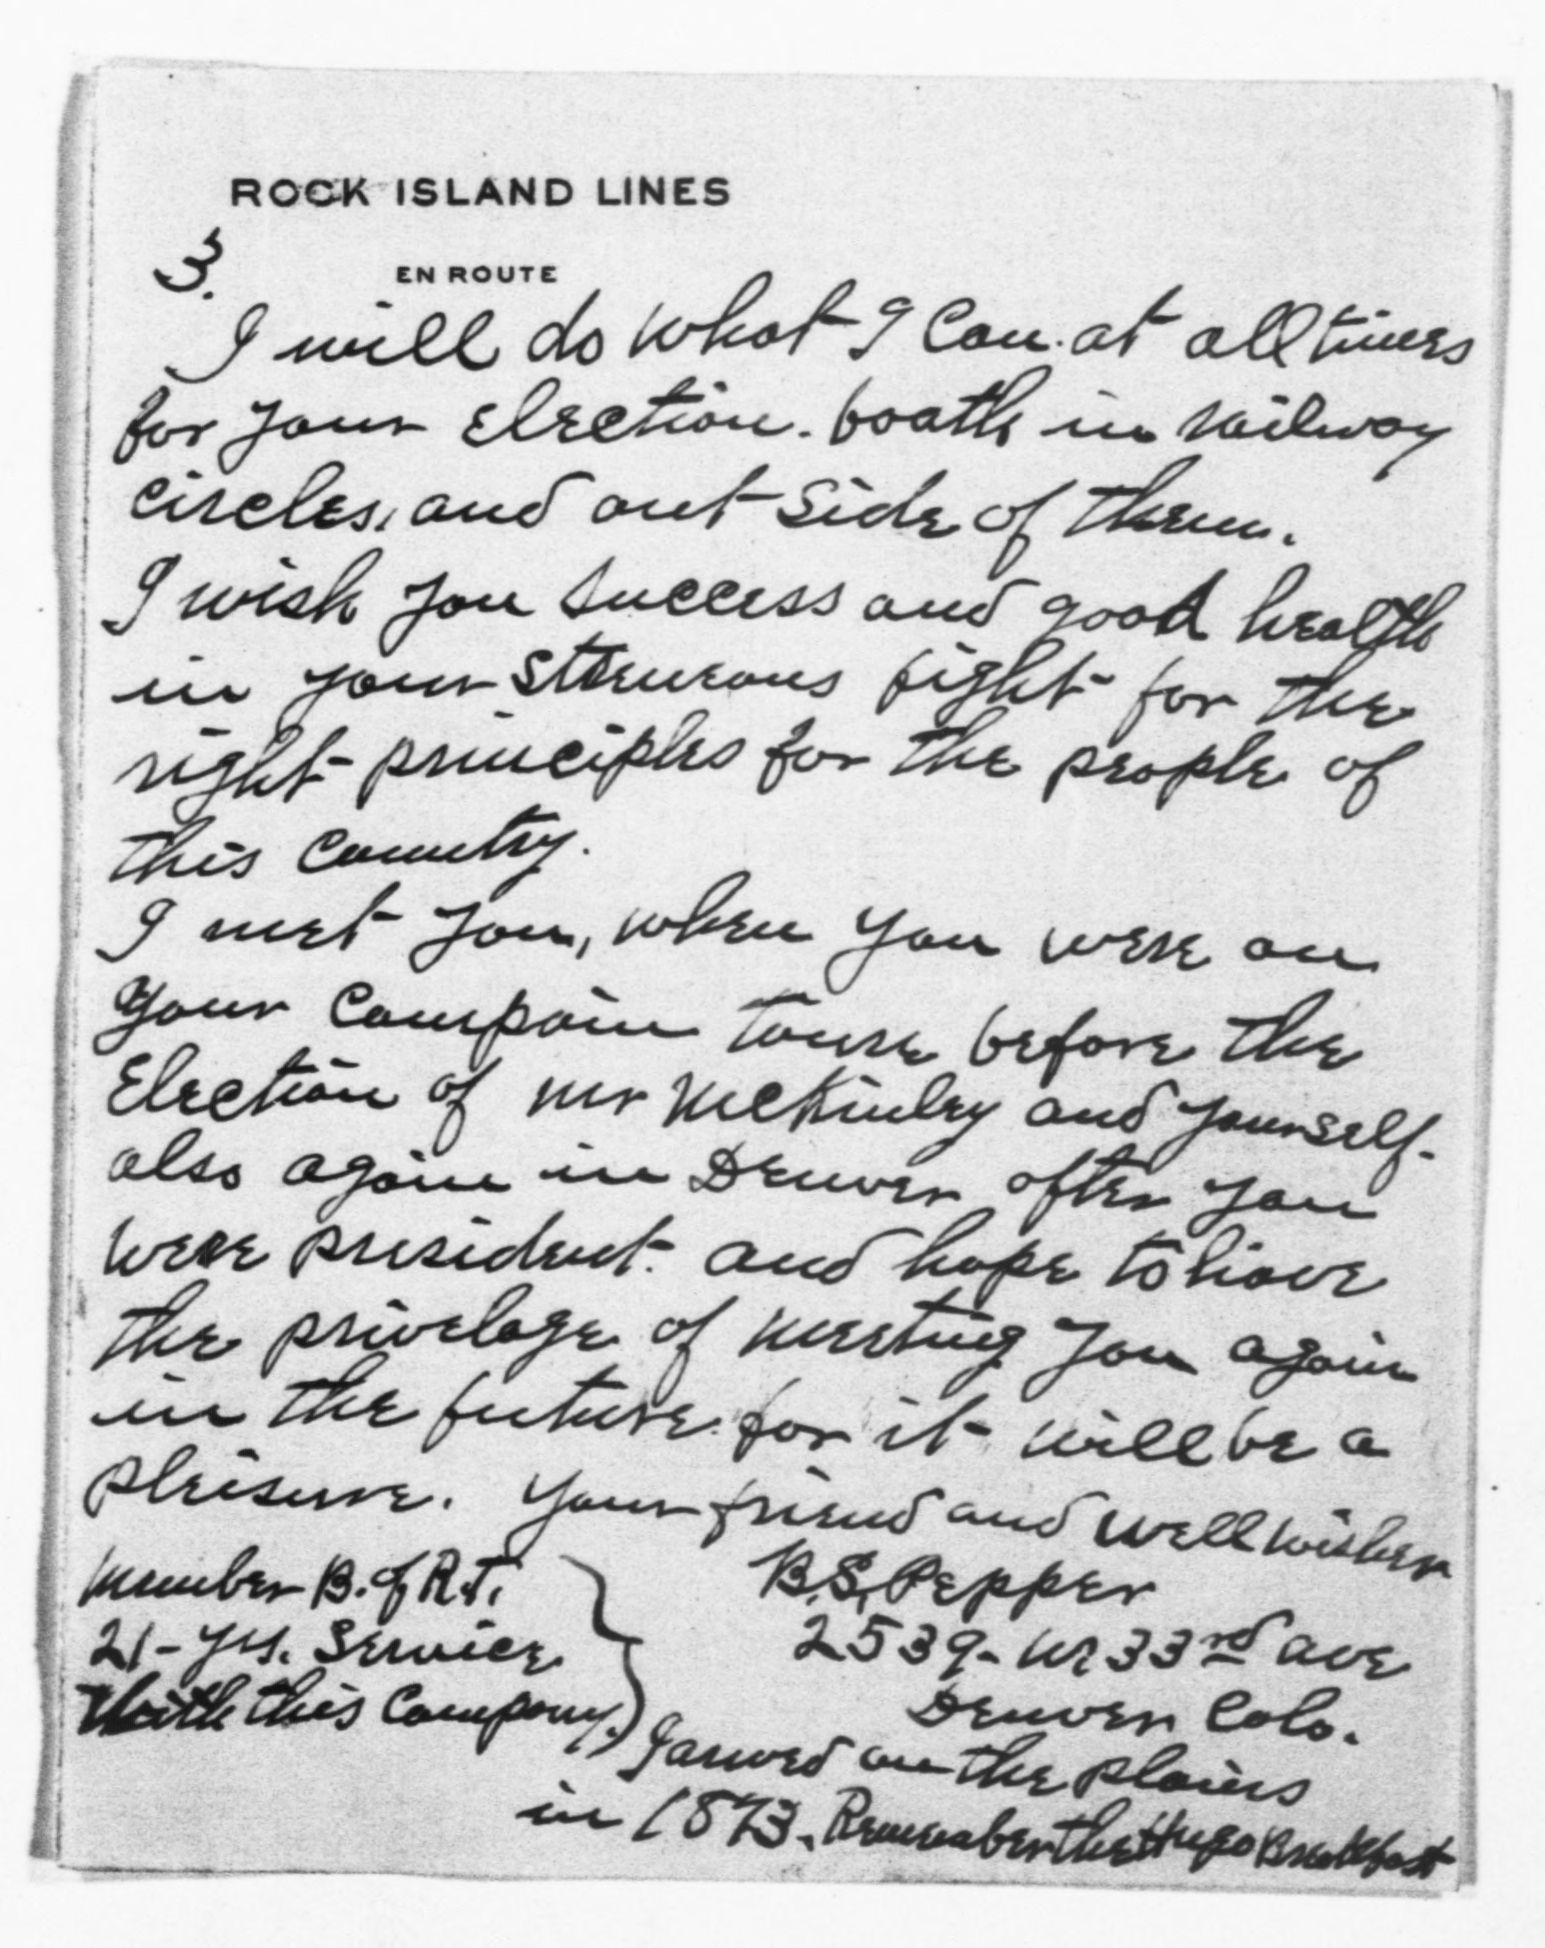 ROCK ISLAND LINES
3.
EN ROUTE
I will do what I can. at all times
for your election. boath in railway
circles, and out side of them.
I wish you success and good health
in your streneous fight for the
right principles for the people of
this country.
I met you, when you were on
your campain toure before the
Election of mr McKinley and yourself.
also again in Denver after you
were president. and hope to have
the privelage of meeting you again
in the future. for it will be a
pleisure. your friend and well wisher
Member B. of R.T.
21 - yrs. Service
With this Company.
B.S. Pepper
2539 - W 33rd ave
Denver Colo.
I arived on the plains
in 1873. Remember the Hugo Breakfast